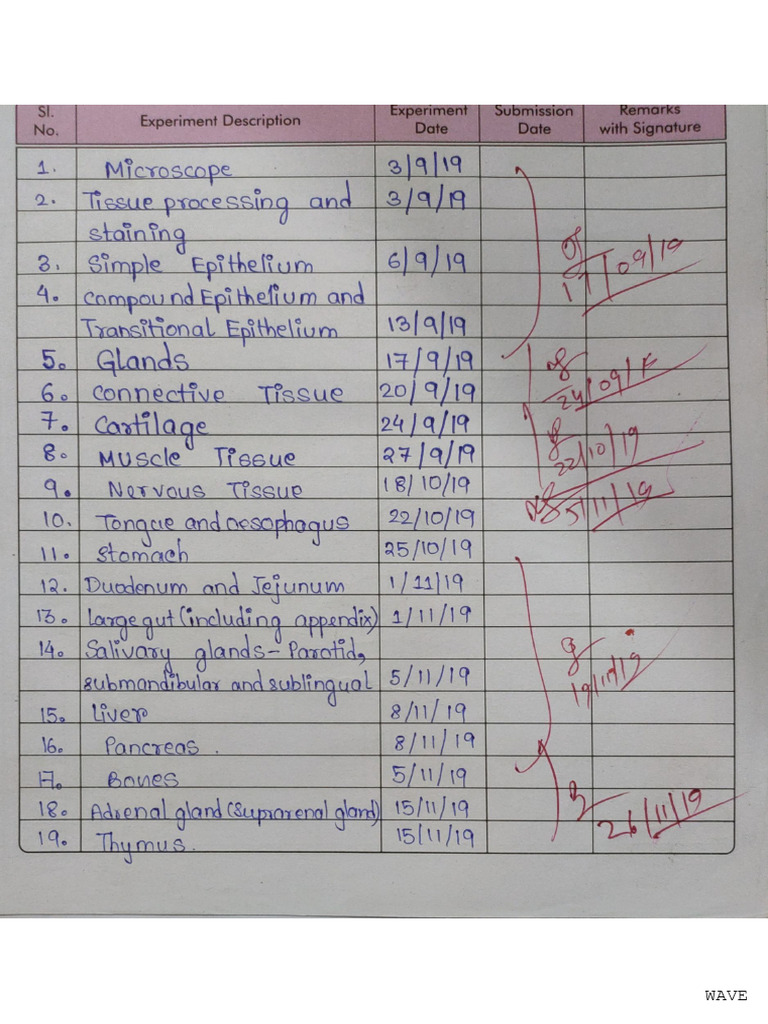 Sl. No. Experiment Description Experiment Date Submission Date Remarks with Signature
1. Microscope 3/9/19
2. Tissue processing and 3/9/19
staining
3. Simple Epithelium 6/9/19
4. Compound Epithelium and
Transitional Epithelium 13/9/19
17/09/19
5. Glands 17/9/19
6. Connective Tissue 20/9/19
24/09/
7. Cartilage 24/9/19
8. Muscle Tissue 27/9/19
22/10/19
9. Nervous Tissue 18/10/19
5/11/19
10. Tongue and oesophagus 22/10/19
11. Stomach 25/10/19
12. Duodenum and Jejunum 1/11/19
13. Large gut (including appendix) 1/11/19
14. Salivary glands - Parotid,
submandibular and sublingual 5/11/19
19/11/19
15. Liver 8/11/19
16. Pancreas. 8/11/19
17. Bones 5/11/19
18. Adrenal gland (Suprarenal gland) 15/11/19
26/11/19
19. Thymus. 15/11/19
WAVE